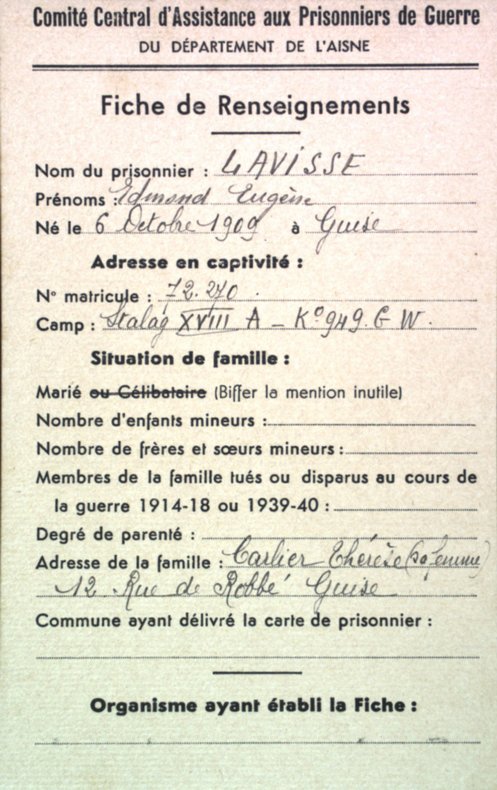 Comité Central d'Assistance aux Prisonniers de Guerre
DU DÉPARTEMENT DE L'AISNE
Fiche de Renseignements
Nom du prisonnier : LAVISSE
Prénoms : Edmond Eugène
Né le 6 Octobre 1909 à Guise
Adresse en captivité :
N° matricule : 72.270.
Camp : Stalag XVIII A - K° 949. G W.
Situation de famille :
Marié ou Célibataire (Biffer la mention inutile)
Nombre d'enfants mineurs :
Nombre de frères et sœurs mineurs :
Membres de la famille tués ou disparus au cours de
la guerre 1914-18 ou 1939-40 :
Degré de parenté :
Adresse de la famille : Carlier Thérèse (sa femme)
12 Rue de Robbé Guise
Commune ayant délivré la carte de prisonnier :
Organisme ayant établi la Fiche :